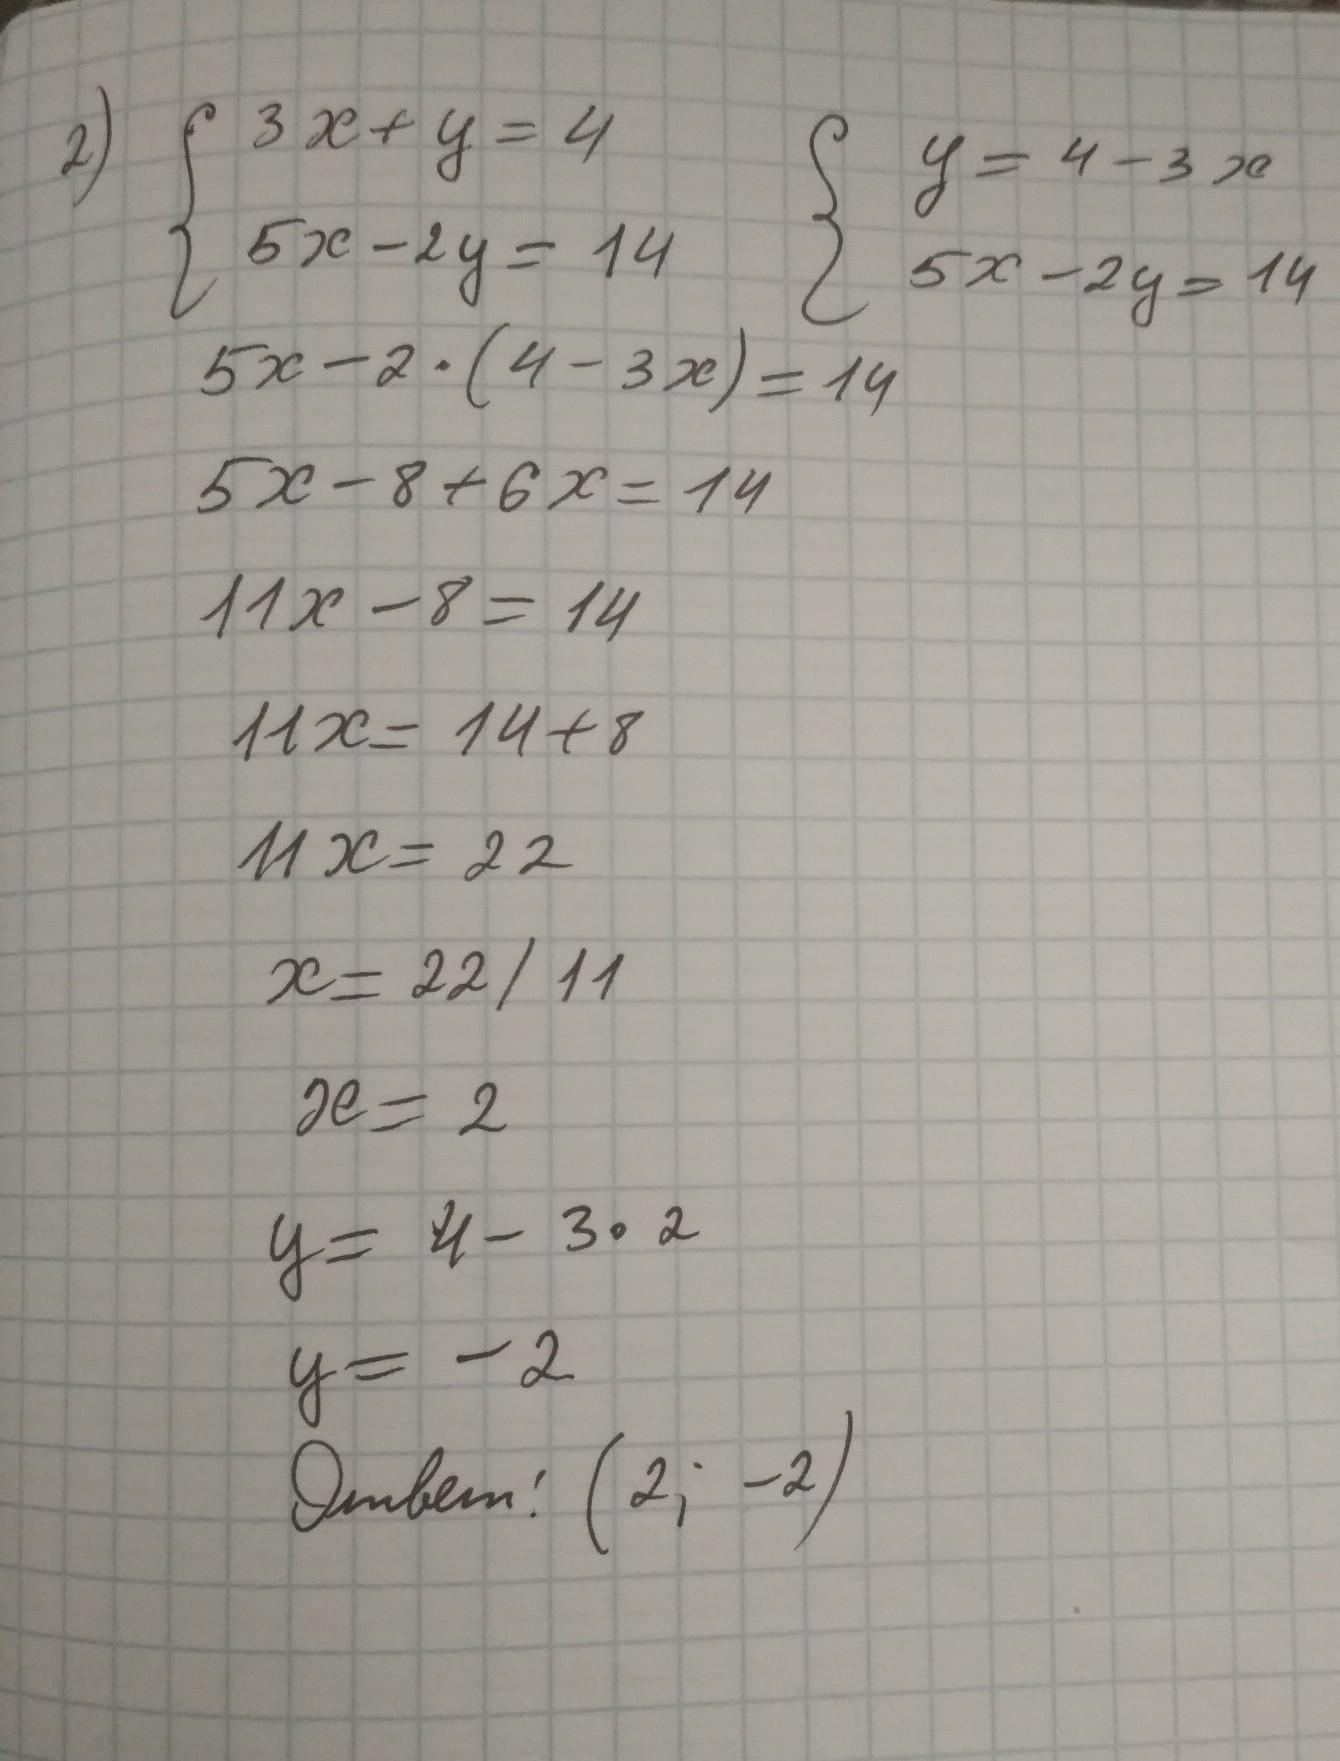 2) { 3x + y = 4
5x - 2y = 14
{ y = 4 - 3x
5x - 2y = 14
5x - 2 · (4 - 3x) = 14
5x - 8 + 6x = 14
11x - 8 = 14
11x = 14 + 8
11x = 22
x = 22 / 11
x = 2
y = 4 - 3 · 2
y = -2
Ответ: (2; -2)